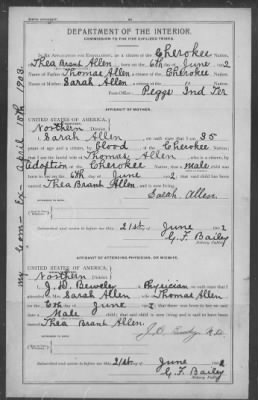 DEPARTMENT OF THE INTERIOR.
COMMISSION TO THE FIVE CIVILIZED TRIBES.
IN RE APPLICATION FOR ENROLLMENT, as a citizen of the Cherokee Nation,
of Thea Brant Allen, born on the 6th day of June, 1902
Name of Father: Thomas Allen a citizen of the Cherokee Nation.
Name of Mother: Sarah Allen a citizen of the Nation.
Postoffice Pegge Ind Ter
AFFIDAVIT OF MOTHER.
UNITED STATES OF AMERICA,
Northern District.
I, Sarah Allen, on oath state that I am 35
years of age and a citizen, by blood, of the Cherokee Nation;
that I am the lawful wife of Thomas Allen, who is a citizen, by
adoption of the Cherokee Nation; that a male child was
born to me on the 6th day of June, 1902, that said child has been
named Thea Brant Allen, and is now living.
Sarah Allen.
Subscribed and sworn to before me this 21st day of June 1902
G. F. Bailey
Notary Public.
AFFIDAVIT OF ATTENDING PHYSICIAN, OR MIDWIFE.
UNITED STATES OF AMERICA,
Northern District.
I, J. D., a Physician, on oath state that I
attended on Mrs. Sarah Allen, wife of Thomas Allen
on the 6th day of June, 1902; that there was born to her on said
date a Male child; that said child is now living and is said to have been
named Thea Brant Allen
M.D.
Subscribed and sworn to before me this 21st day of June 1902
G. F. Bailey
Notary Public.
my Com- Ex- April 15th 1903.